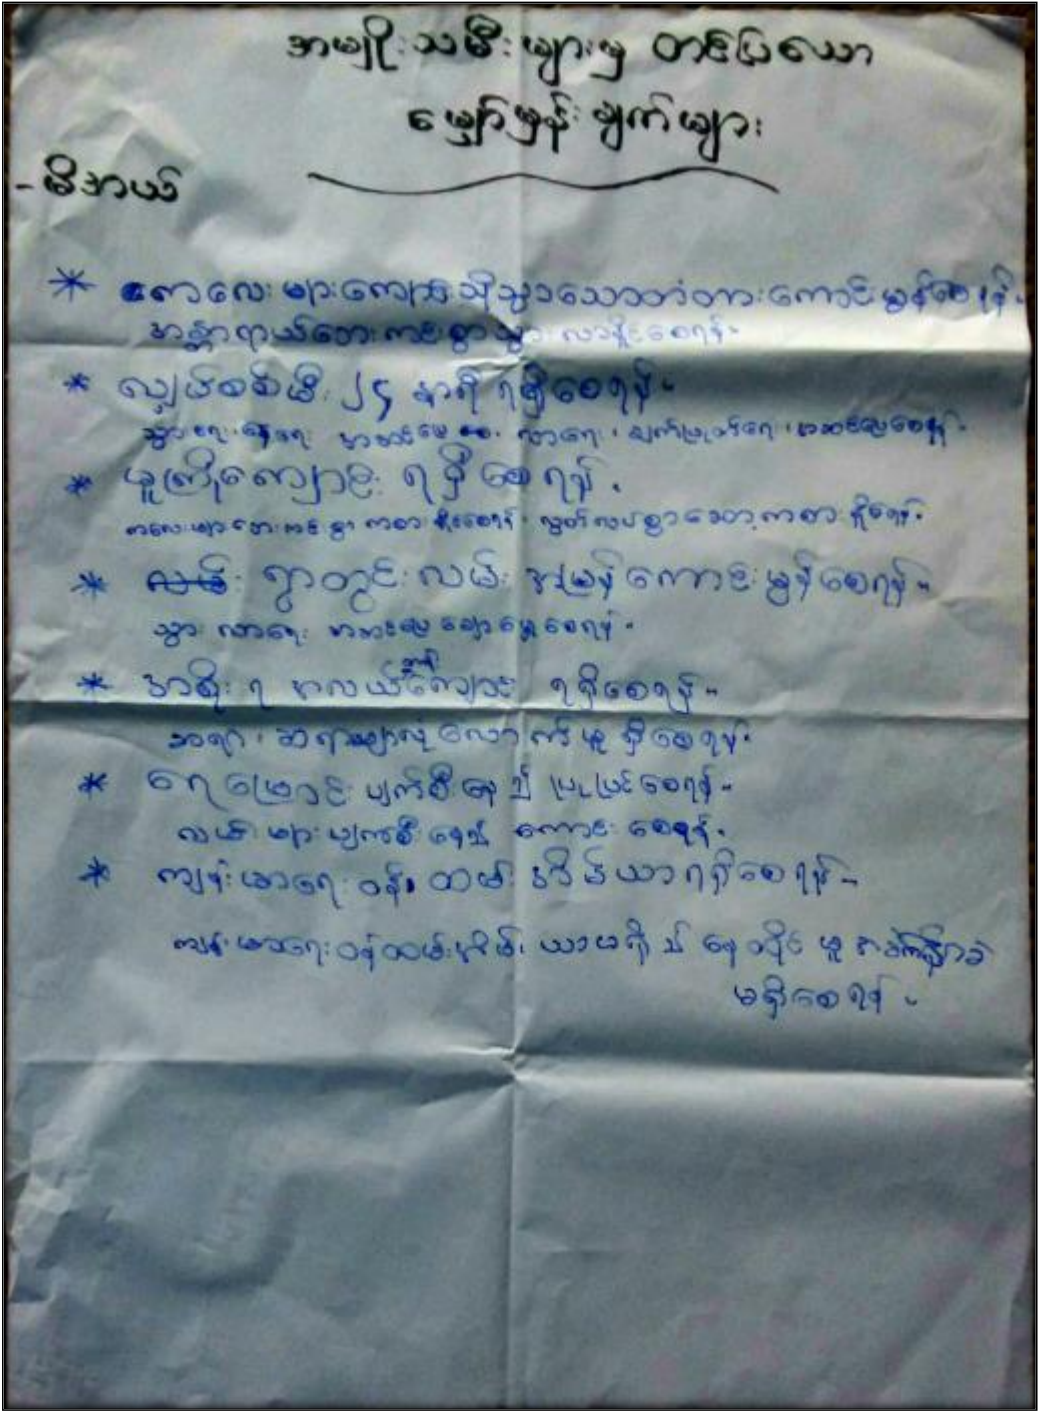 အမျိုးသမီးများမှ တင်ပြသော
မျှော်မှန်းချက်များ
- မိအယ်
* ကလေးများကျောင်းသို့သွားသောတံတားကောင်းမွန်စေရန်။
အန္တာရာယ်ဘေးကင်းစွာသွားလာနိုင်စေရန်။
* လျှပ်စစ်မီး ၂၄ နာရီ ရရှိစေရန်။
သွားရေး နေရေး အဆင်ပြေ လာရေး၊ ချက်ပြုတ်ရေး၊ အဆင်ပြေစေရန်။
* မူကြိုကျောင်း ရရှိစေရန်။
ကလေးများဘေးကင်းစွာ ကစားနိုင်စေရန်၊ လွတ်လပ်စွာဆော့ကစားနိုင်ရန်။
* လမ်း ရွာတွင်းလမ်း အမြန်ကောင်းမွန်စေရန်။
သွားလာရေး အဆင်ပြေချောမွေ့စေရန်။
* အစိုးရ အလယ်တန်းကျောင်း ရရှိစေရန်။
ဆရာ၊ ဆရာမများလုံလောက်မှု ရှိစေရန်။
* ရေမြောင်း ပျက်စီးနေ၍ ပြုပြင်စေရန်။
လမ်းများပျက်စီးနေ၍ ကောင်းစေရန်။
* ကျန်းမာရေး ဝန်ထမ်းအိမ်ယာရရှိစေရန်။
ကျန်းမာရေးဝန်ထမ်းအိမ်ယာမရှိ၍ နေထိုင်မှု အခက်အခဲ
မရှိစေရန်။